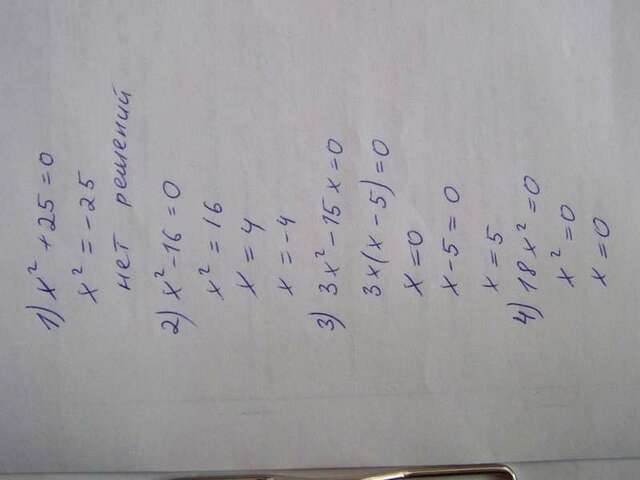 1) x² + 25 = 0
x² = -25
нет решений
2) x² - 16 = 0
x² = 16
x = 4
x = -4
3) 3x² - 15x = 0
3x(x - 5) = 0
x = 0
x - 5 = 0
x = 5
4) 18x² = 0
x² = 0
x = 0